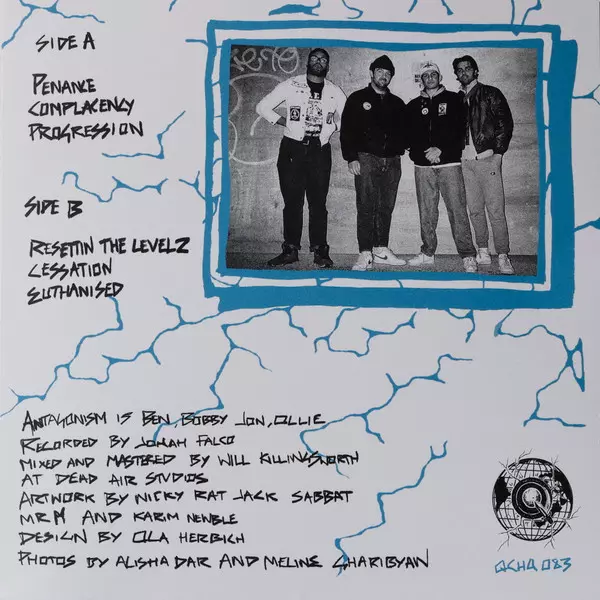 SIDE A
PENANCE
COMPLACENCY
PROGRESSION
SIDE B
RESETTIN THE LEVELZ
CESSATION
EUTHANISED
ANTAGONISM IS BEN, BOBBY, JON, OLLIE
RECORDED BY JONAH FALCO
MIXED AND MASTERED BY WILL KILLINGSWORTH
AT DEAD AIR STUDIOS
ARTWORK BY NICKY RAT JACK SABBAT
MR M AND KARIM NEWBLE
DESIGN BY OLA HERBICH
PHOTOS BY ALISHA DAR AND MELINE GHARIBYAN
QCHQ 083